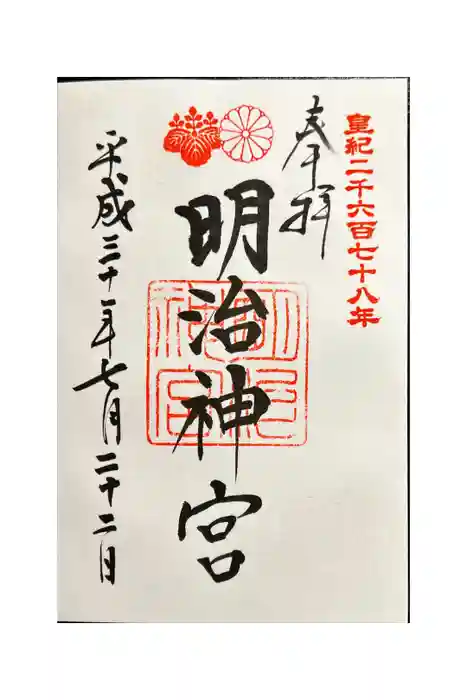 皇紀二千六百七十八年
奉拝
明治神宮
明治神宮
平成三十年七月二十二日